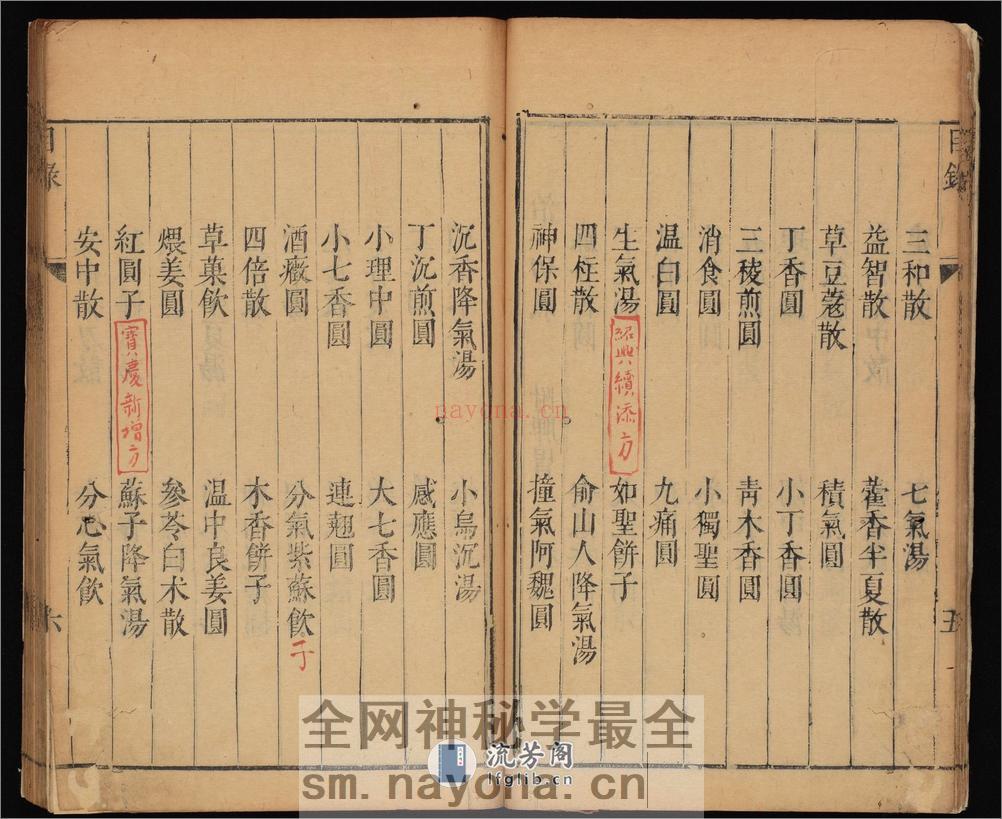 目錄
五
三和散 七氣湯
益智散 藿香半夏散
草豆蔻散 積氣圓
丁香圓 小丁香圓
三稜煎圓 青木香圓
消食圓 小獨聖圓
温白圓 九痛圓
生氣湯 紹興續添方 如聖餅子
四柱散 俞山人降氣湯
神保圓 撞氣阿魏圓
沉香降氣湯 小烏沉湯
丁沉煎圓 感應圓
小理中圓 大七香圓
小七香圓 連翹圓
酒癥圓 分氣紫蘇飲 子
四倍散 木香餅子
草菓飲 温中良姜圓
煨姜圓 參苓白术散
紅圓子 寶慶新增方 蘇子降氣湯
安中散 分心氣飲
目錄
六
nayona.cn
全网神秘学最全
流芳阁
lfglib.cn
sm.nayona.cn